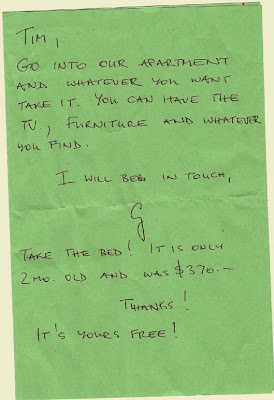 TIM,
GO INTO OUR APARTMENT
AND WHATEVER YOU WANT
TAKE IT. YOU CAN HAVE THE
TV, FURNITURE AND WHATEVER
YOU FIND.
I WILL BE IN TOUCH,
G
TAKE THE BED! IT IS ONLY
2 MO. OLD AND WAS $370.—
THANKS!
IT'S YOURS FREE!